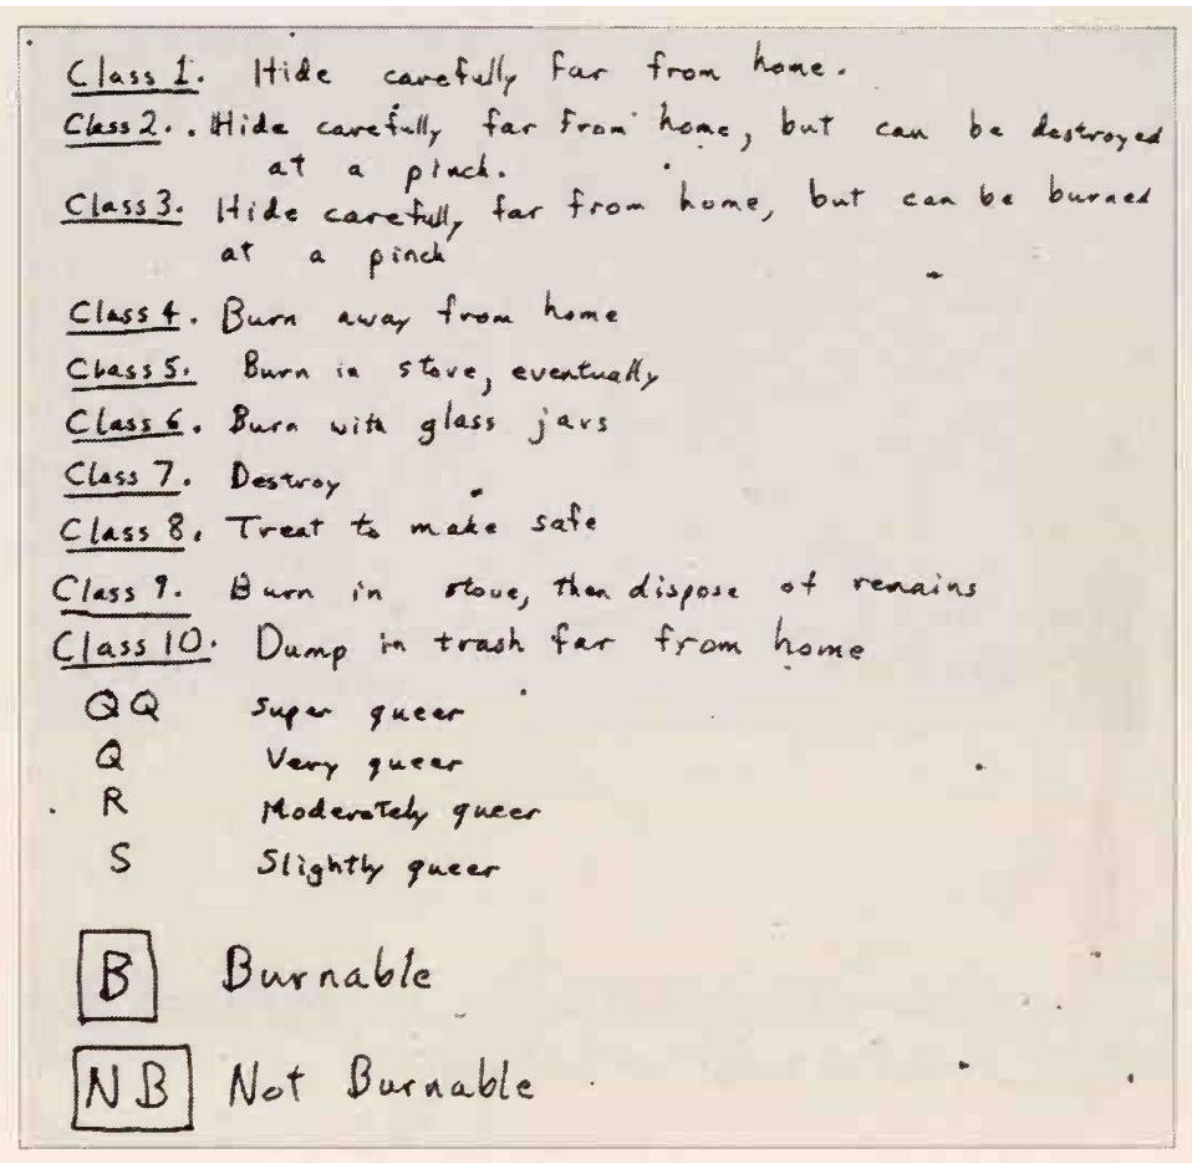 Class 1. Hide carefully far from home.
Class 2. . Hide carefully far from home, but can be destroyed
at a pinch.
Class 3. Hide carefully far from home, but can be burned
at a pinch
Class 4. Burn away from home
Class 5. Burn in stove, eventually
Class 6. Burn with glass jars
Class 7. Destroy
Class 8. Treat to make safe
Class 9. Burn in stove, then dispose of remains
Class 10. Dump in trash far from home
QQ Super queer
Q Very queer
R Moderately queer
S Slightly queer
B Burnable
NB Not Burnable